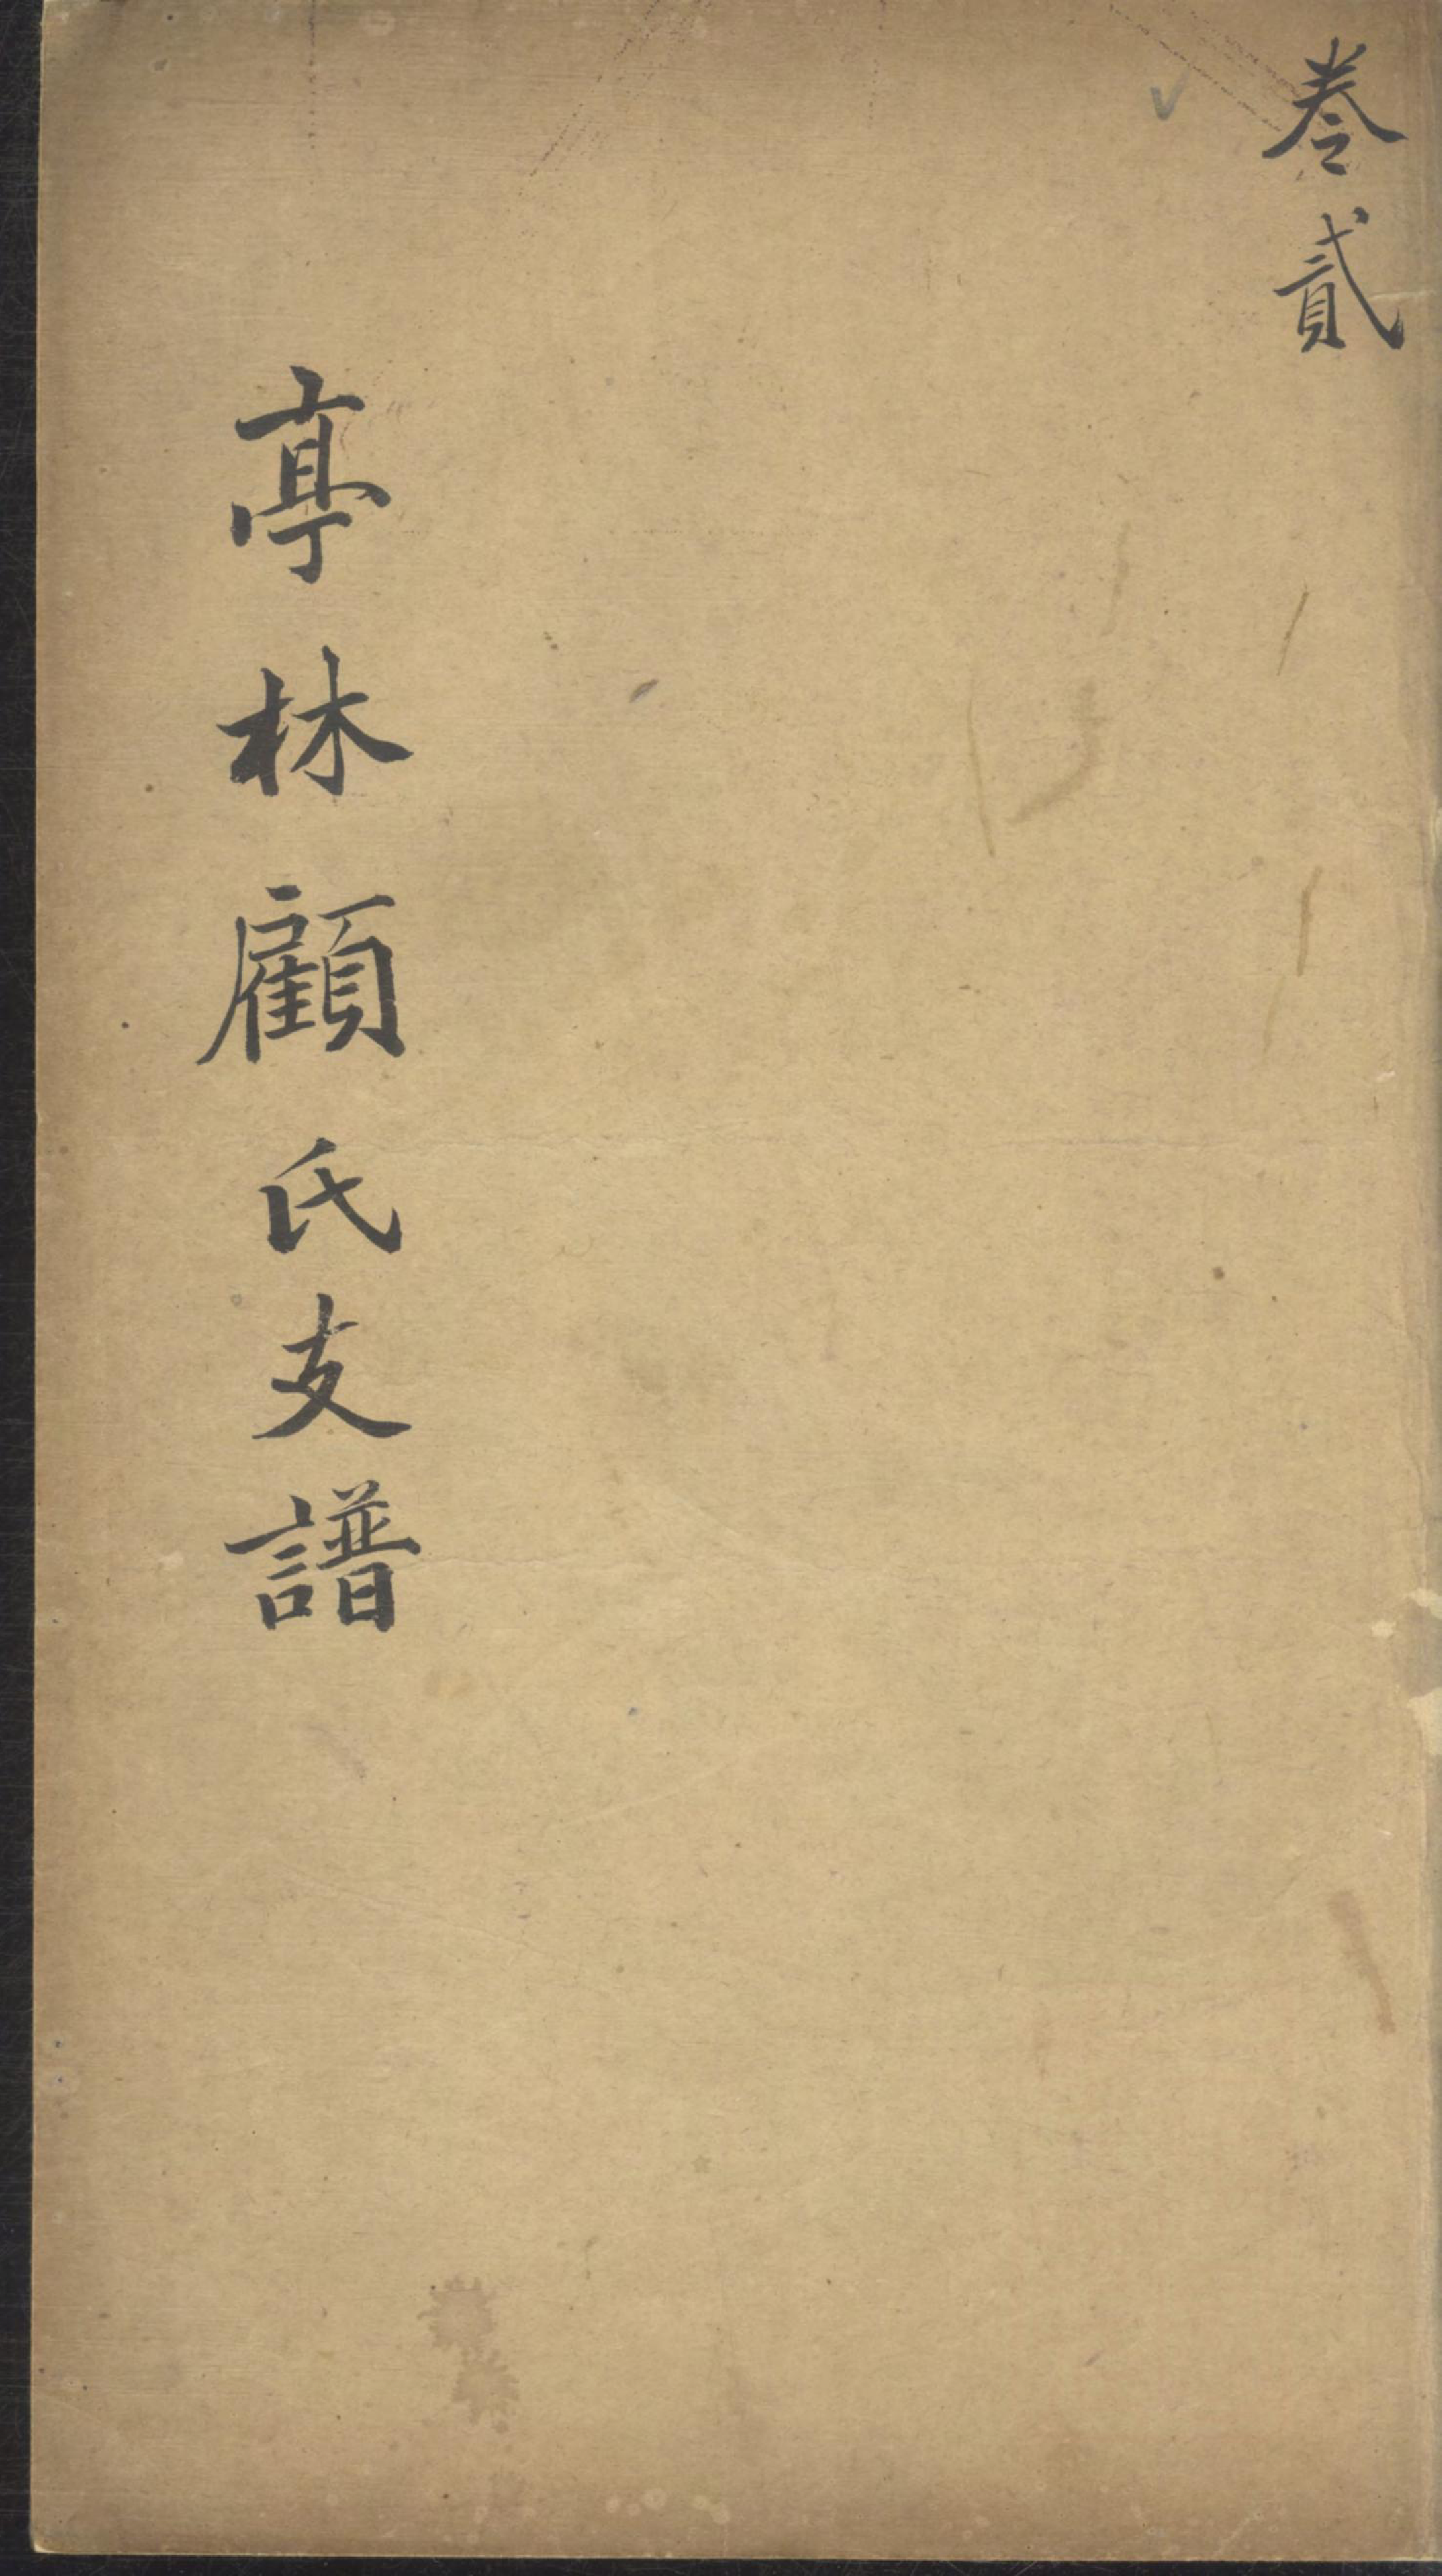 卷貳
亭林顧氏支譜